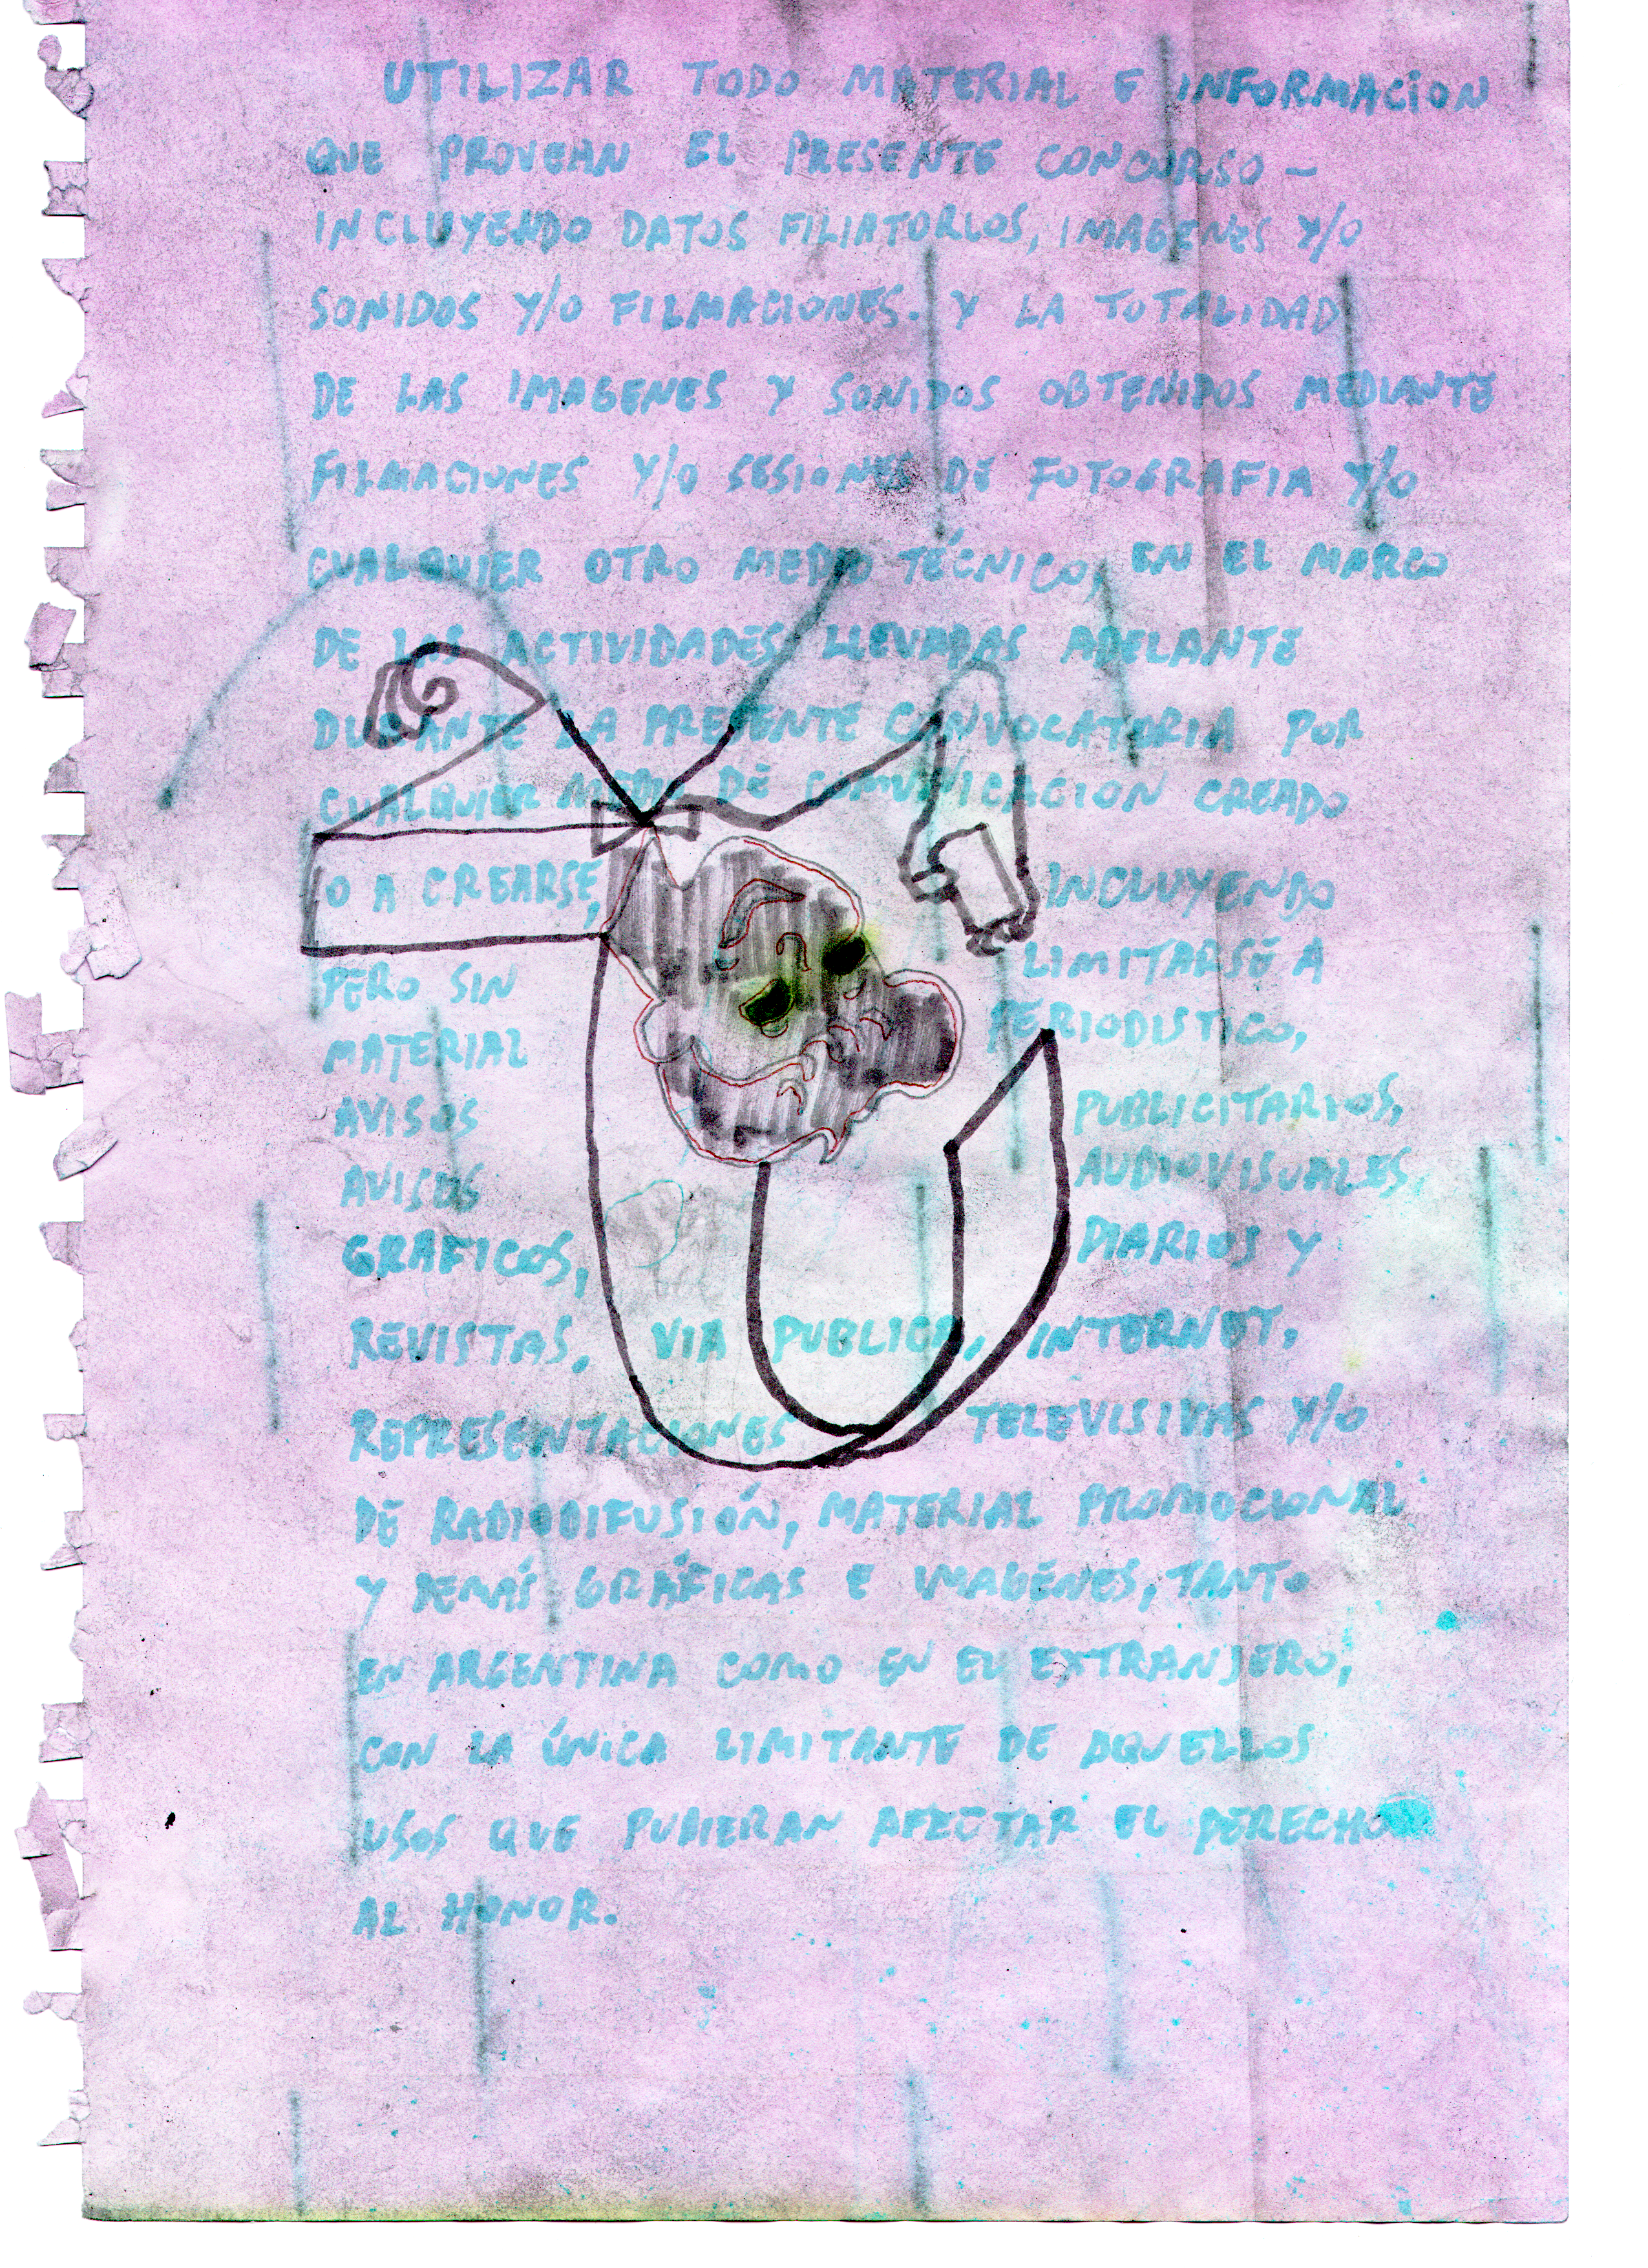 UTILIZAR TODO MATERIAL E INFORMACION
QUE PROVEAN EL PRESENTE CONCURSO –
INCLUYENDO DATOS FILIATORIOS, IMAGENES Y/O
SONIDOS Y/O FILMACIONES. Y LA TOTALIDAD
DE LAS IMAGENES Y SONIDOS OBTENIDOS MEDIANTE
FILMACIONES Y/O SESIONES DE FOTOGRAFIA Y/O
CUALQUIER OTRO MEDIO TÉCNICO, EN EL MARCO
DE LAS ACTIVIDADES LLEVADAS ADELANTE
DURANTE LA PRESENTE CONVOCATORIA POR
CUALQUIER MEDIO DE COMUNICACION CREADO
O A CREARSE, INCLUYENDO
PERO SIN LIMITARSE A
MATERIAL PERIODISTICO,
AVISOS PUBLICITARIOS,
AVISOS AUDIOVISUALES,
GRAFICOS, DIARIOS Y
REVISTAS, VIA PUBLICA, INTERNET,
REPRESENTACIONES TELEVISIVAS Y/O
DE RADIODIFUSIÓN, MATERIAL PROMOCIONAL
Y DEMÁS GRÁFICAS E IMAGENES, TANTO
EN ARGENTINA COMO EN EL EXTRANJERO,
CON LA ÚNICA LIMITANTE DE AQUELLOS
USOS QUE PUDIERAN AFECTAR EL DERECHO
AL HONOR.